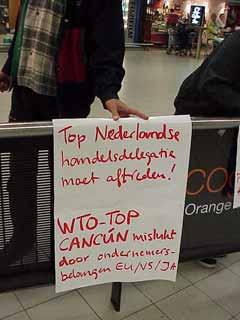 Top Nederlandse
handelsdelegatie
moet aftreden!
WTO-TOP
CANCÚN mislukt
door ondernemers-
belangen EU/VS/JA
Orange